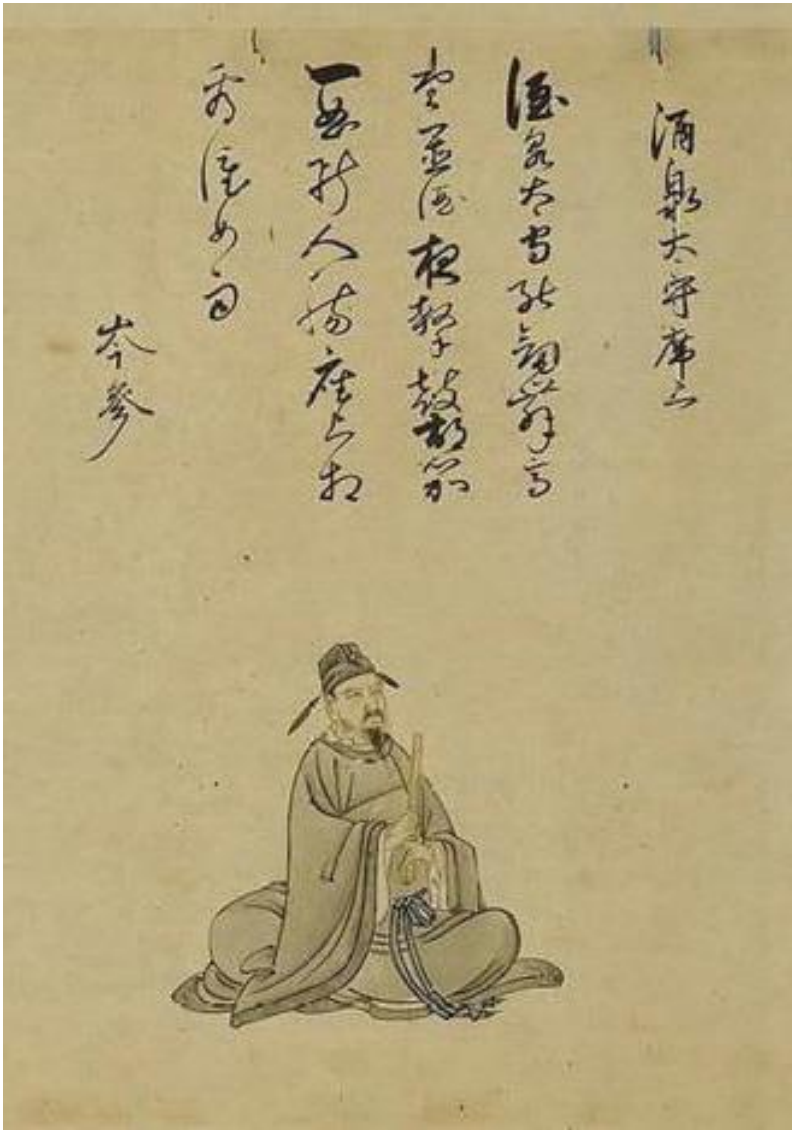 酒泉太守席上
酒泉太守能劔舞高
堂置酒夜擊鼓胡笳
一曲断人腸座上相
看涙如雨
岑參